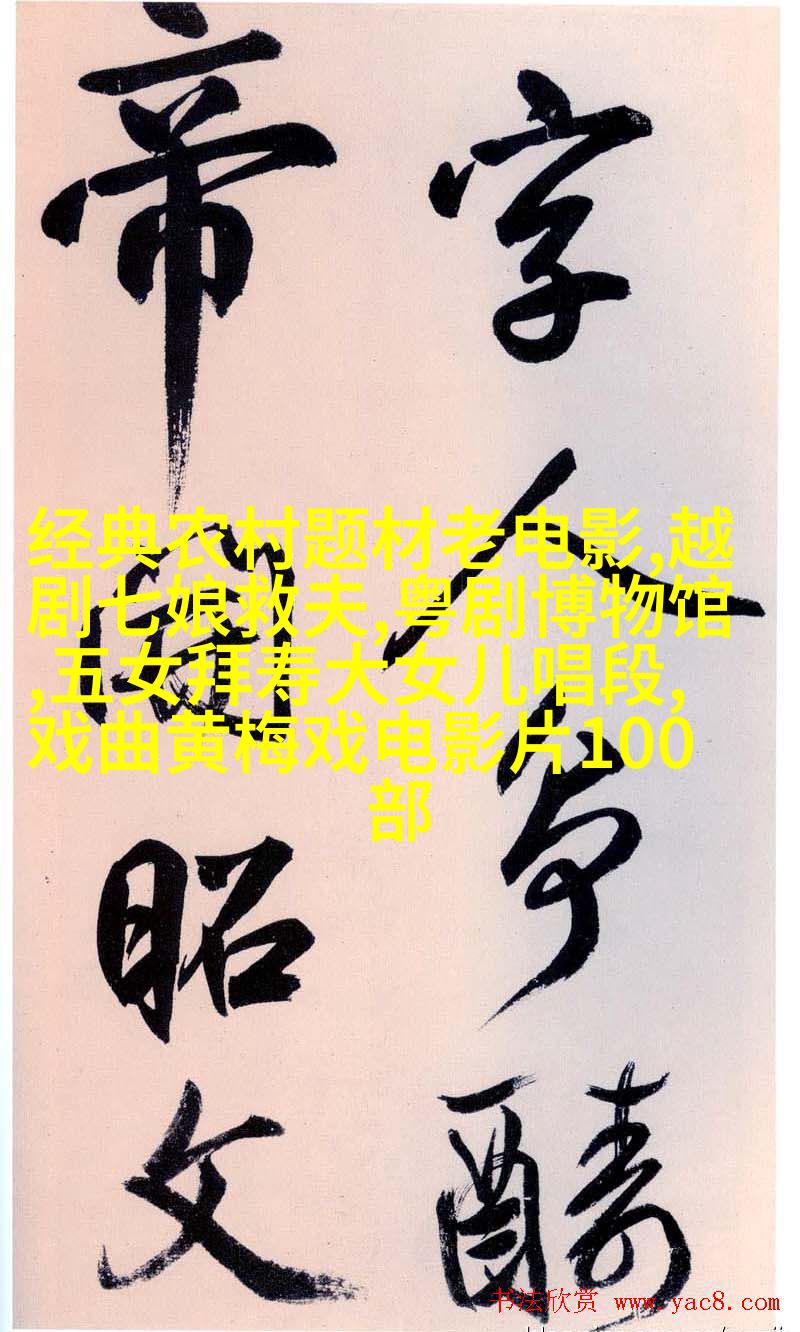 字人争酬
帝图昭文
经典农村题材老电影,越
剧七娘救夫,粤剧博物馆
,五女拜寿大女儿唱段,
戏曲黄梅戏电影片100
部
书法欣赏 www.yac8.com